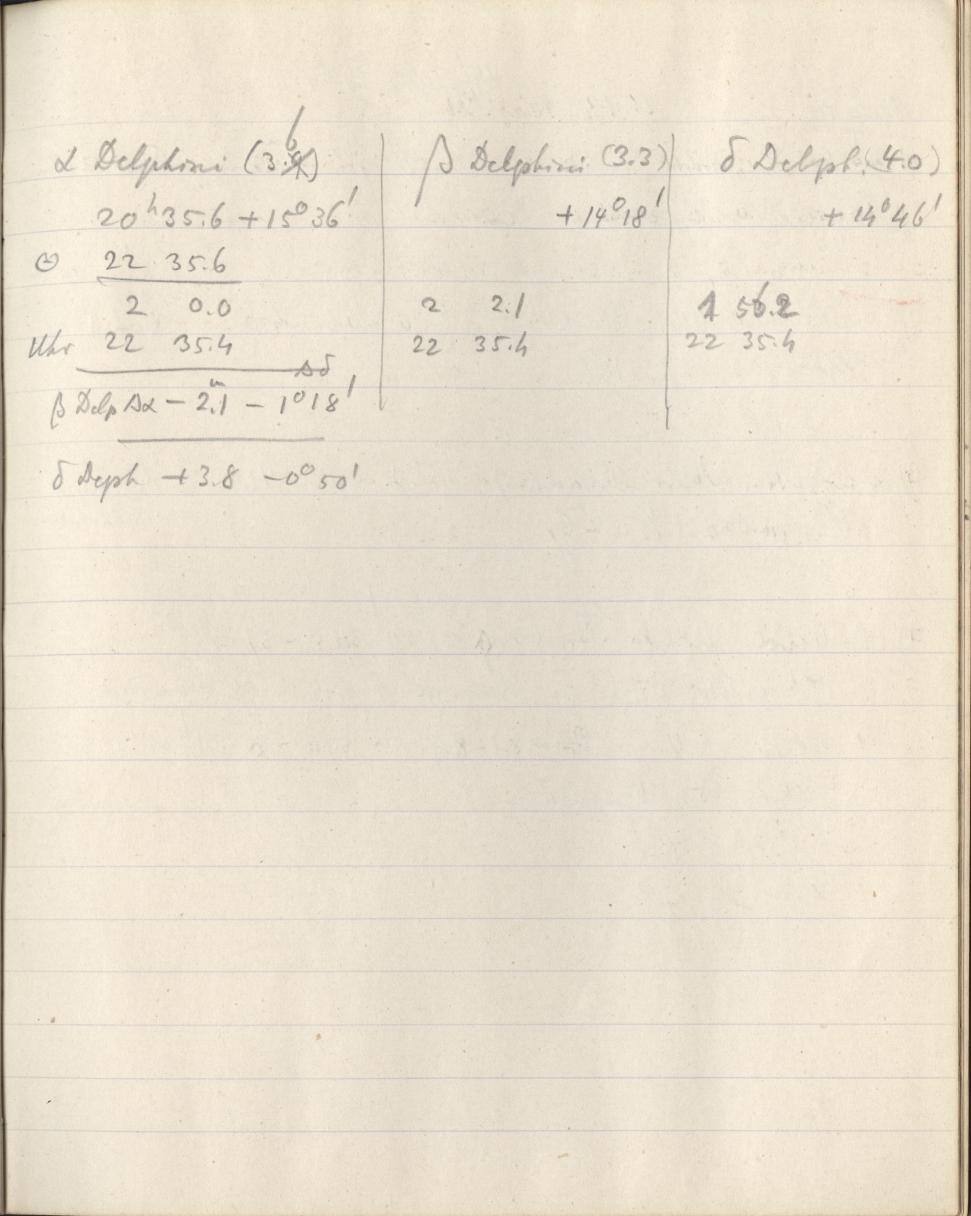 α Delphini (3.6)
20ʰ 35.6 +15° 36'
22 35.6
2 0.0
Uhr 22 35.4
Δδ
β Delp Δα − 2.ᵐ1 − 1° 18'
δ Deph +3.8 −0° 50'
β Delphini (3.3)
+14° 18'
2 2.1
22 35.4
δ Delph. (4.0)
+14° 46'
1 56.2
22 35.4